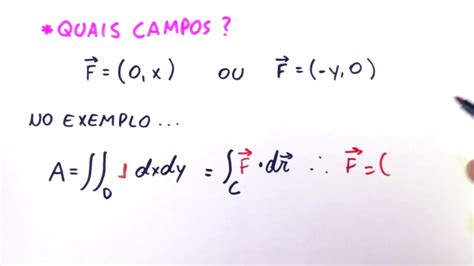 * QUAIS CAMPOS?
F⃗ = (0, x) OU F⃗ = (-y, 0)
NO EXEMPLO ...
A = ∬_D 1 dxdy = ∫_C F⃗ · dr⃗ ∴ F⃗ = (